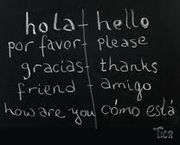 hola - hello
por favor - please
gracias - thanks
friend - amigo
how are you cómo está
Tica